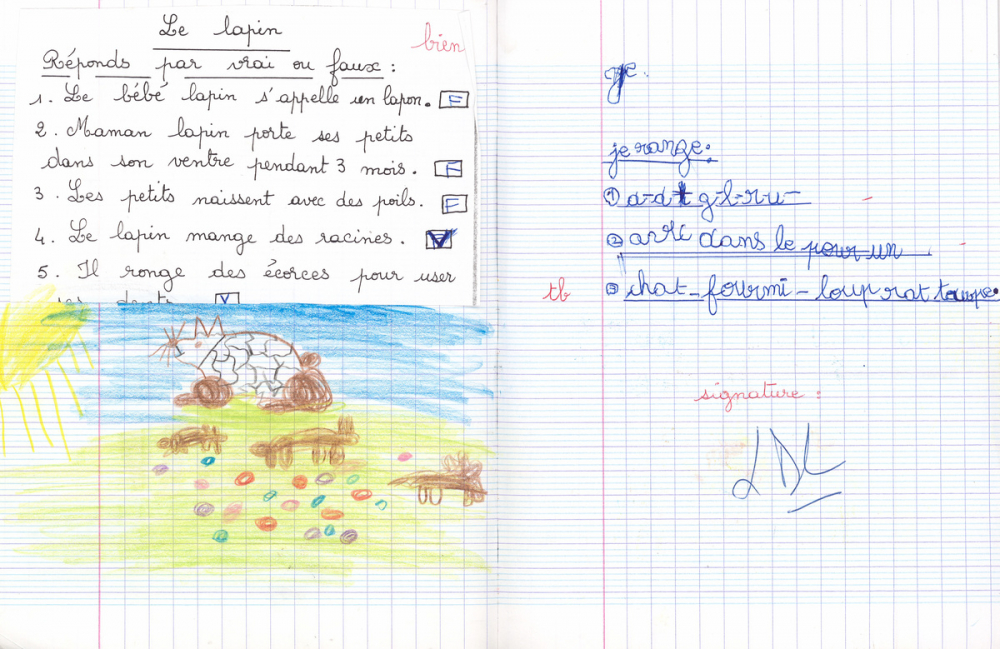 Le lapin
bien
Réponds par vrai ou faux :
1. Le bébé lapin s'appelle un lapon. F
2. Maman lapin porte ses petits
dans son ventre pendant 3 mois. F
3. Les petits naissent avec des poils. F
4. Le lapin mange des racines. V
5. Il ronge des écorces pour user
ses dents. V
je.
je range:
① a-d t g-l-r-u-
② dans le pour un
tb
③ chat - fourmi - loup rat taupe.
signature :